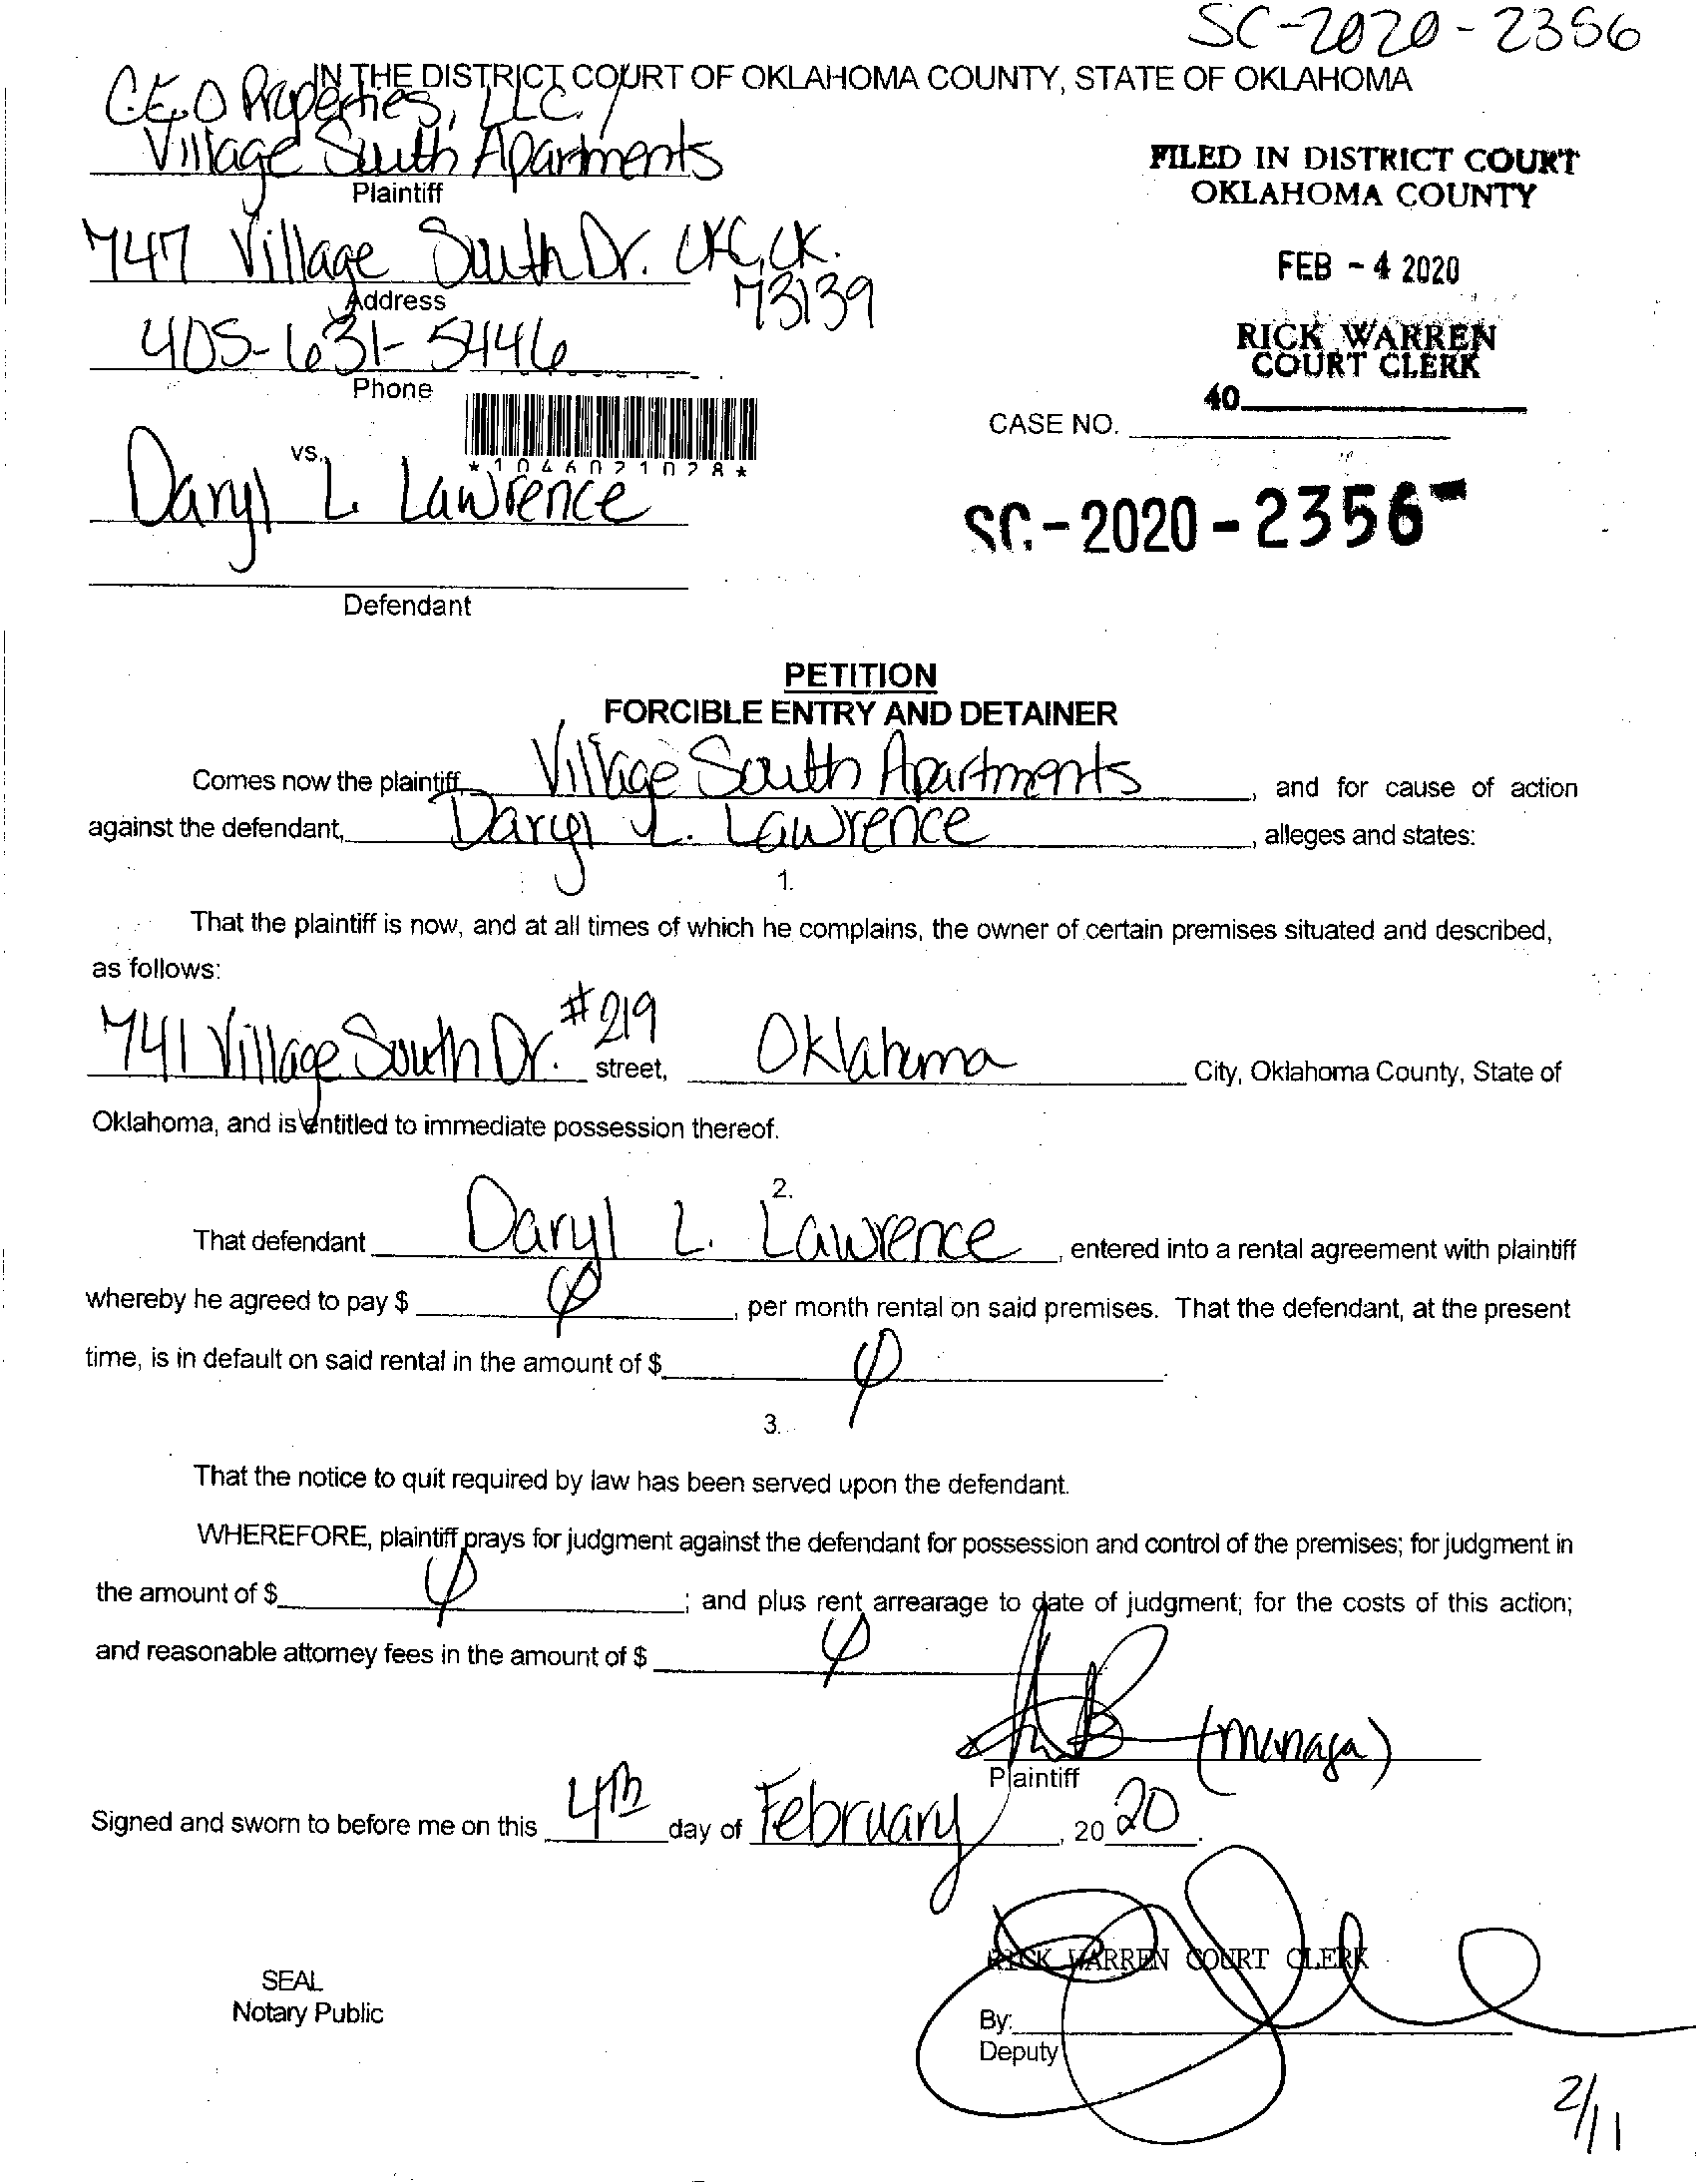 SC-2020-2356
IN THE DISTRICT COURT OF OKLAHOMA COUNTY, STATE OF OKLAHOMA
C.E.O Properties, LLC. /
Village South Apartments
Plaintiff
FILED IN DISTRICT COURT
OKLAHOMA COUNTY
747 Village South Dr. OKC, OK.
73139
Address
FEB - 4 2020
405-631-5446
Phone
RICK WARREN
COURT CLERK
40
CASE NO.
vs.
*1046021028*
Daryl L. Lawrence
SC-2020-2356-
Defendant
PETITION
FORCIBLE ENTRY AND DETAINER
Comes now the plaintiff, Village South Apartments, and for cause of action
against the defendant, Daryl L. Lawrence, alleges and states:
1.
That the plaintiff is now, and at all times of which he complains, the owner of certain premises situated and described,
as follows:
741 Village South Dr. #219 street, Oklahoma City, Oklahoma County, State of
Oklahoma, and is entitled to immediate possession thereof.
2.
That defendant Daryl L. Lawrence, entered into a rental agreement with plaintiff
whereby he agreed to pay $ ∅, per month rental on said premises. That the defendant, at the present
time, is in default on said rental in the amount of $ ∅.
3.
That the notice to quit required by law has been served upon the defendant.
WHEREFORE, plaintiff prays for judgment against the defendant for possession and control of the premises; for judgment in
the amount of $ ∅; and plus rent arrearage to date of judgment; for the costs of this action;
and reasonable attorney fees in the amount of $ ∅
(manager)
Plaintiff
Signed and sworn to before me on this 4th day of February, 2020.
RICK WARREN COURT CLERK
SEAL
Notary Public
By:
Deputy
2/11